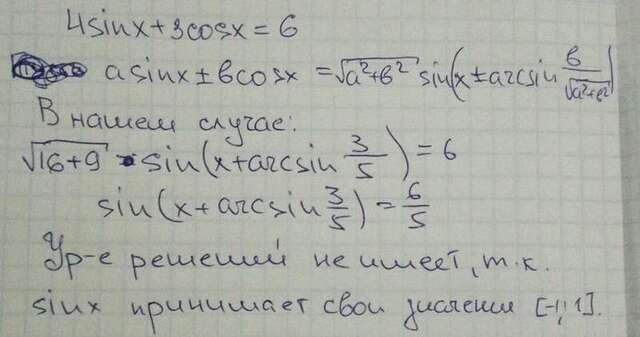 4sinx+3cosx=6
asinx±bcosx = √(a²+b²) sin(x±arcsin b/√(a²+b²))
В нашем случае:
√(16+9) · sin(x+arcsin 3/5) = 6
sin(x+arcsin 3/5) = 6/5
Ур-е решений не имеет, т.к.
sinx принимает свои значения [-1;1].